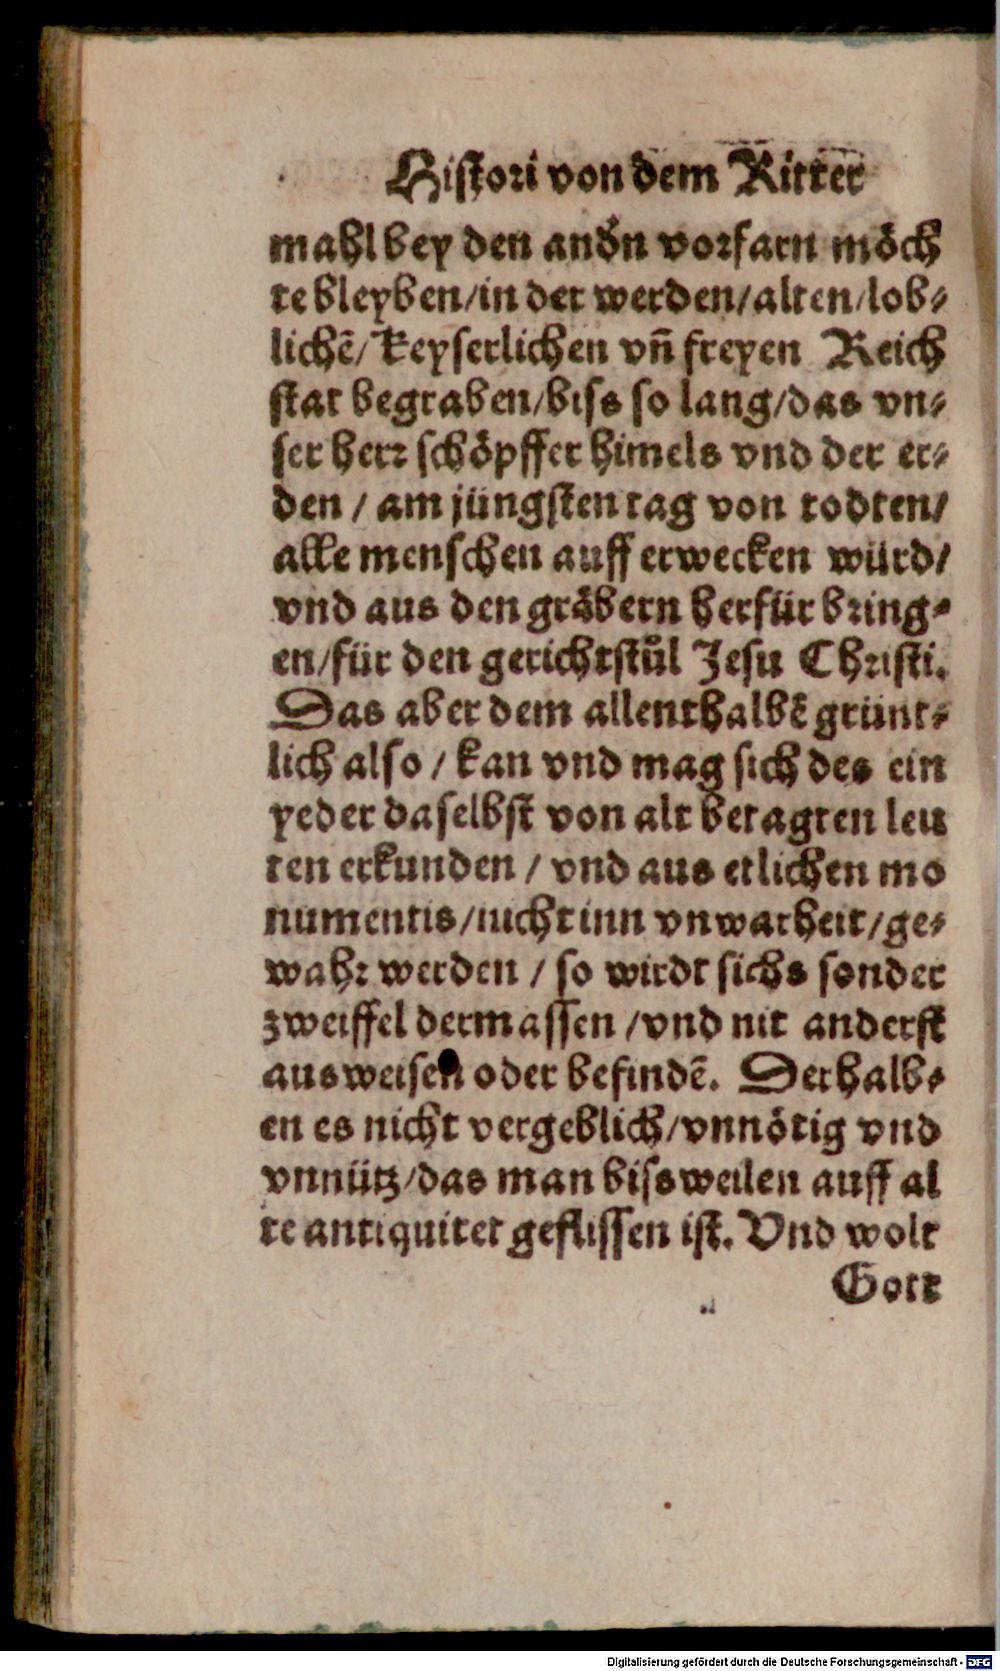 Histori von dem Ritter
mahl bey den andn̄ vorfarn möch
te bleyben/in der werden/alten/lob⸗
lichē/ keyserlichen vn̄ freyen Reich
stat begraben/biss so lang/das vn⸗
ser herr schöpffer himels vnd der er⸗
den / am jüngsten tag von todten/
alle menschen auff erwecken würd/
vnd aus den gräbern herfür bring⸗
en/für den gerichtstůl Jesu Christi.
Das aber dem allenthalbē grünt⸗
lich also / kan vnd mag sich des ein
yeder daselbst von alt betagten leu
ten erkunden / vnd aus etlichen mo
numentis/nicht inn vnwarheit/ge⸗
wahr werden / so wirdt sichs sonder
zweiffel dermassen /vnd nit anderst
ausweisen oder befindē. Derhalb⸗
en es nicht vergeblich/vnnötig vnd
vnnütz/das man bissweilen auff al
te antiquitet geflissen ist. Vnd wolt
Gott
Digitalisierung gefördert durch die Deutsche Forschungsgemeinschaft - DFG